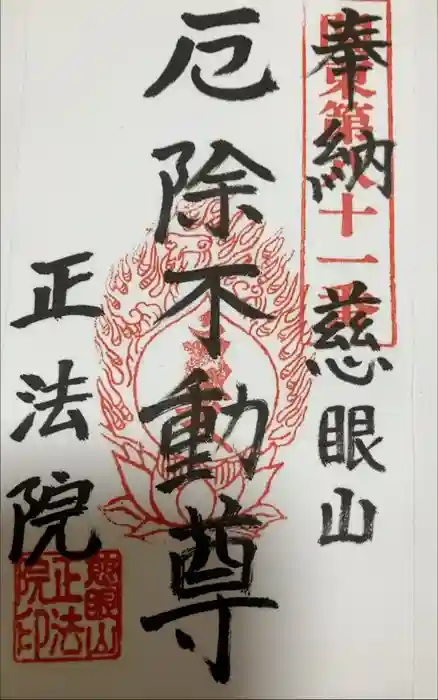 奉納 慈眼山
厄除不動尊
正法院
東第
十一番
慈眼山
正法
院印